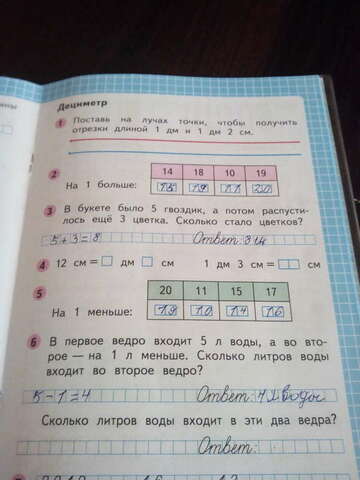 Дециметр
1 Поставь на лучах точки, чтобы получить
отрезки длиной 1 дм и 1 дм 2 см.
2 14 18 10 19
На 1 больше: 15 19 11 20
3 В букете было 5 гвоздик, а потом распусти-
лось ещё 3 цветка. Сколько стало цветков?
5+3=8 Ответ:
4 12 см = дм см 1 дм 3 см = см
5 20 11 15 17
На 1 меньше: 19 10 14 16
6 В первое ведро входит 5 л воды, а во вто-
рое — на 1 л меньше. Сколько литров воды
входит во второе ведро?
5-1=4 Ответ: 4 л воды
Сколько литров воды входит в эти два ведра?
Ответ: